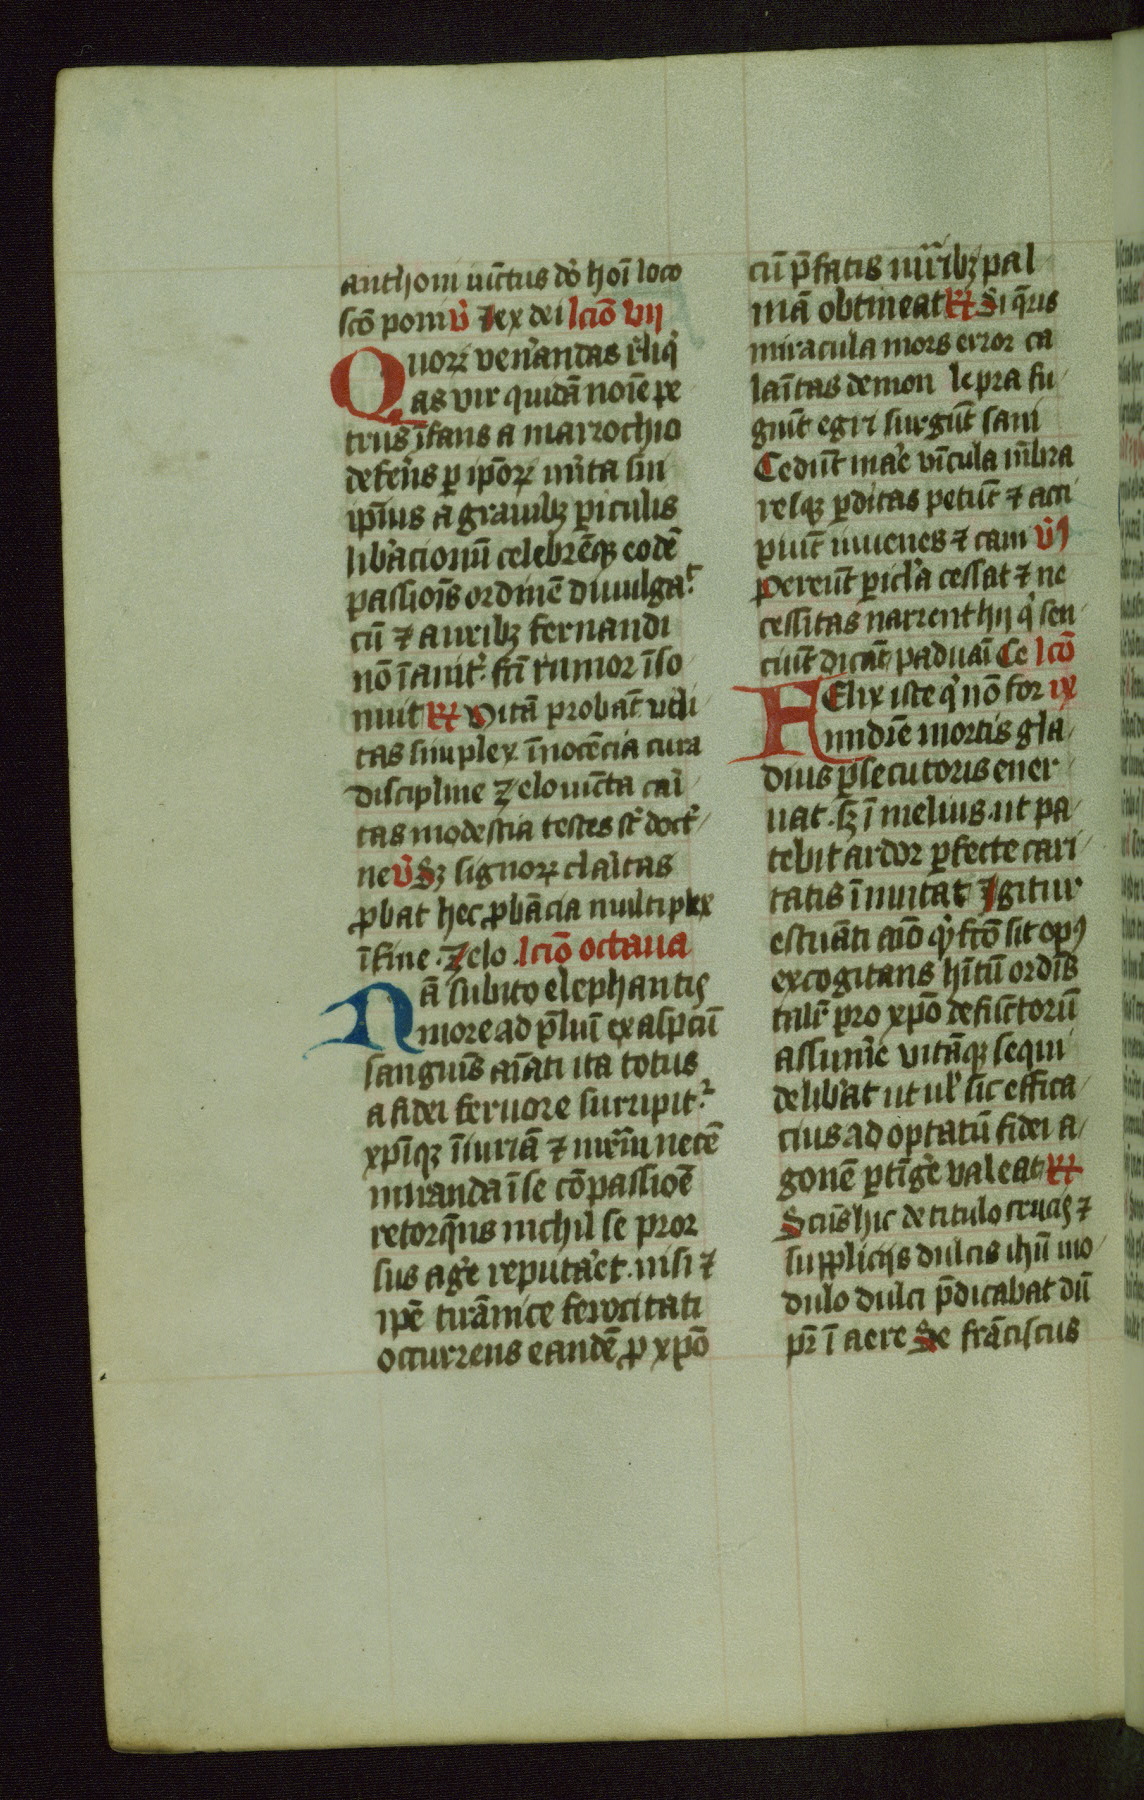 anthoni uīctus dō hoī loco
scō poni v̄ Jex dei lcīo vij
Quorꝝ ven̄andas r̄liq̄
as vir quidā noīe pe
trus īfans a marrochio
defer̄is ꝑ ipōrꝝ m̄ita sui
ipīus a grauibꝫ ꝑiculis
lib̄acionū celebrēqꝫ eodē
passiōis ordinē diuulgat
cū ⁊ auribꝫ fernandi
nō īanit̄ scī rumor īso
nuit ℟ Vitā probat̄ vtili
tas simplex īnocēcia cura
discipline zelo iūcta cāi
tas modestia testes st̄ doct̄
ne v̄ Sꝫ signorꝝ clāitas
ꝓbat hec ꝓbācia multiplex
īfine. Zelo. lcīo octaua
Nā subito elephantis
more ad p̄liū ex aspc̄tū
sanguīs aīati ita totus
a fidei feruore surripit̄
xpīqꝫ īiuriā ⁊ mr̄iū necē
miranda ī se cōpassiōe
retorq̄ns nichil se pror
sus aḡe reputar̄et. nisi ⁊
ipē tirānice ferocitati
occurrens eandē ꝓ xpō
cū p̄fatis mr̄ribꝫ pal
mā obtineat ℟ Si q̄ris
miracula mors error ca
laītas demon lepra fu
giūt egri surgūt sani
Cedūt mar̄e vīcula mēbra
resqꝫ ꝑditas petūt ⁊ acci
piūt iuuenes ⁊ cani v̄s
Pereūt ꝑicl̄a cessat ⁊ ne
cessitas narrent hij q̄ sen
ciūt dicāt paduaī Ce lcō
Felix iste q̄ nō for ix
midīe mortis gla
dius ꝑsecutoris ener
uat. sꝫ ī melius. ut pa
tebit ardor ꝑfecte cari
tatis īmutat Igitur
estuāti aīo qͥ fcō sit opꝰ
excogitans hītū ordīs
talit̄ pro xpō defūctorū
assum̄e vitāqꝫ sequi
delib̄at ut ul̄ sic effica
cius ad optatū fidei a
gonē ꝑtīḡe valeat ℟
Scūs hic de titulo crucis ⁊
supplicijs dulcis ihū mo
dulo dulci p̄dicabat dū
pr̄ ī aere Se frāciscus